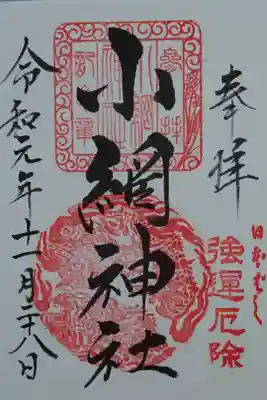 奉拝
強運厄除
小網神社
令和元年十一月二十八日